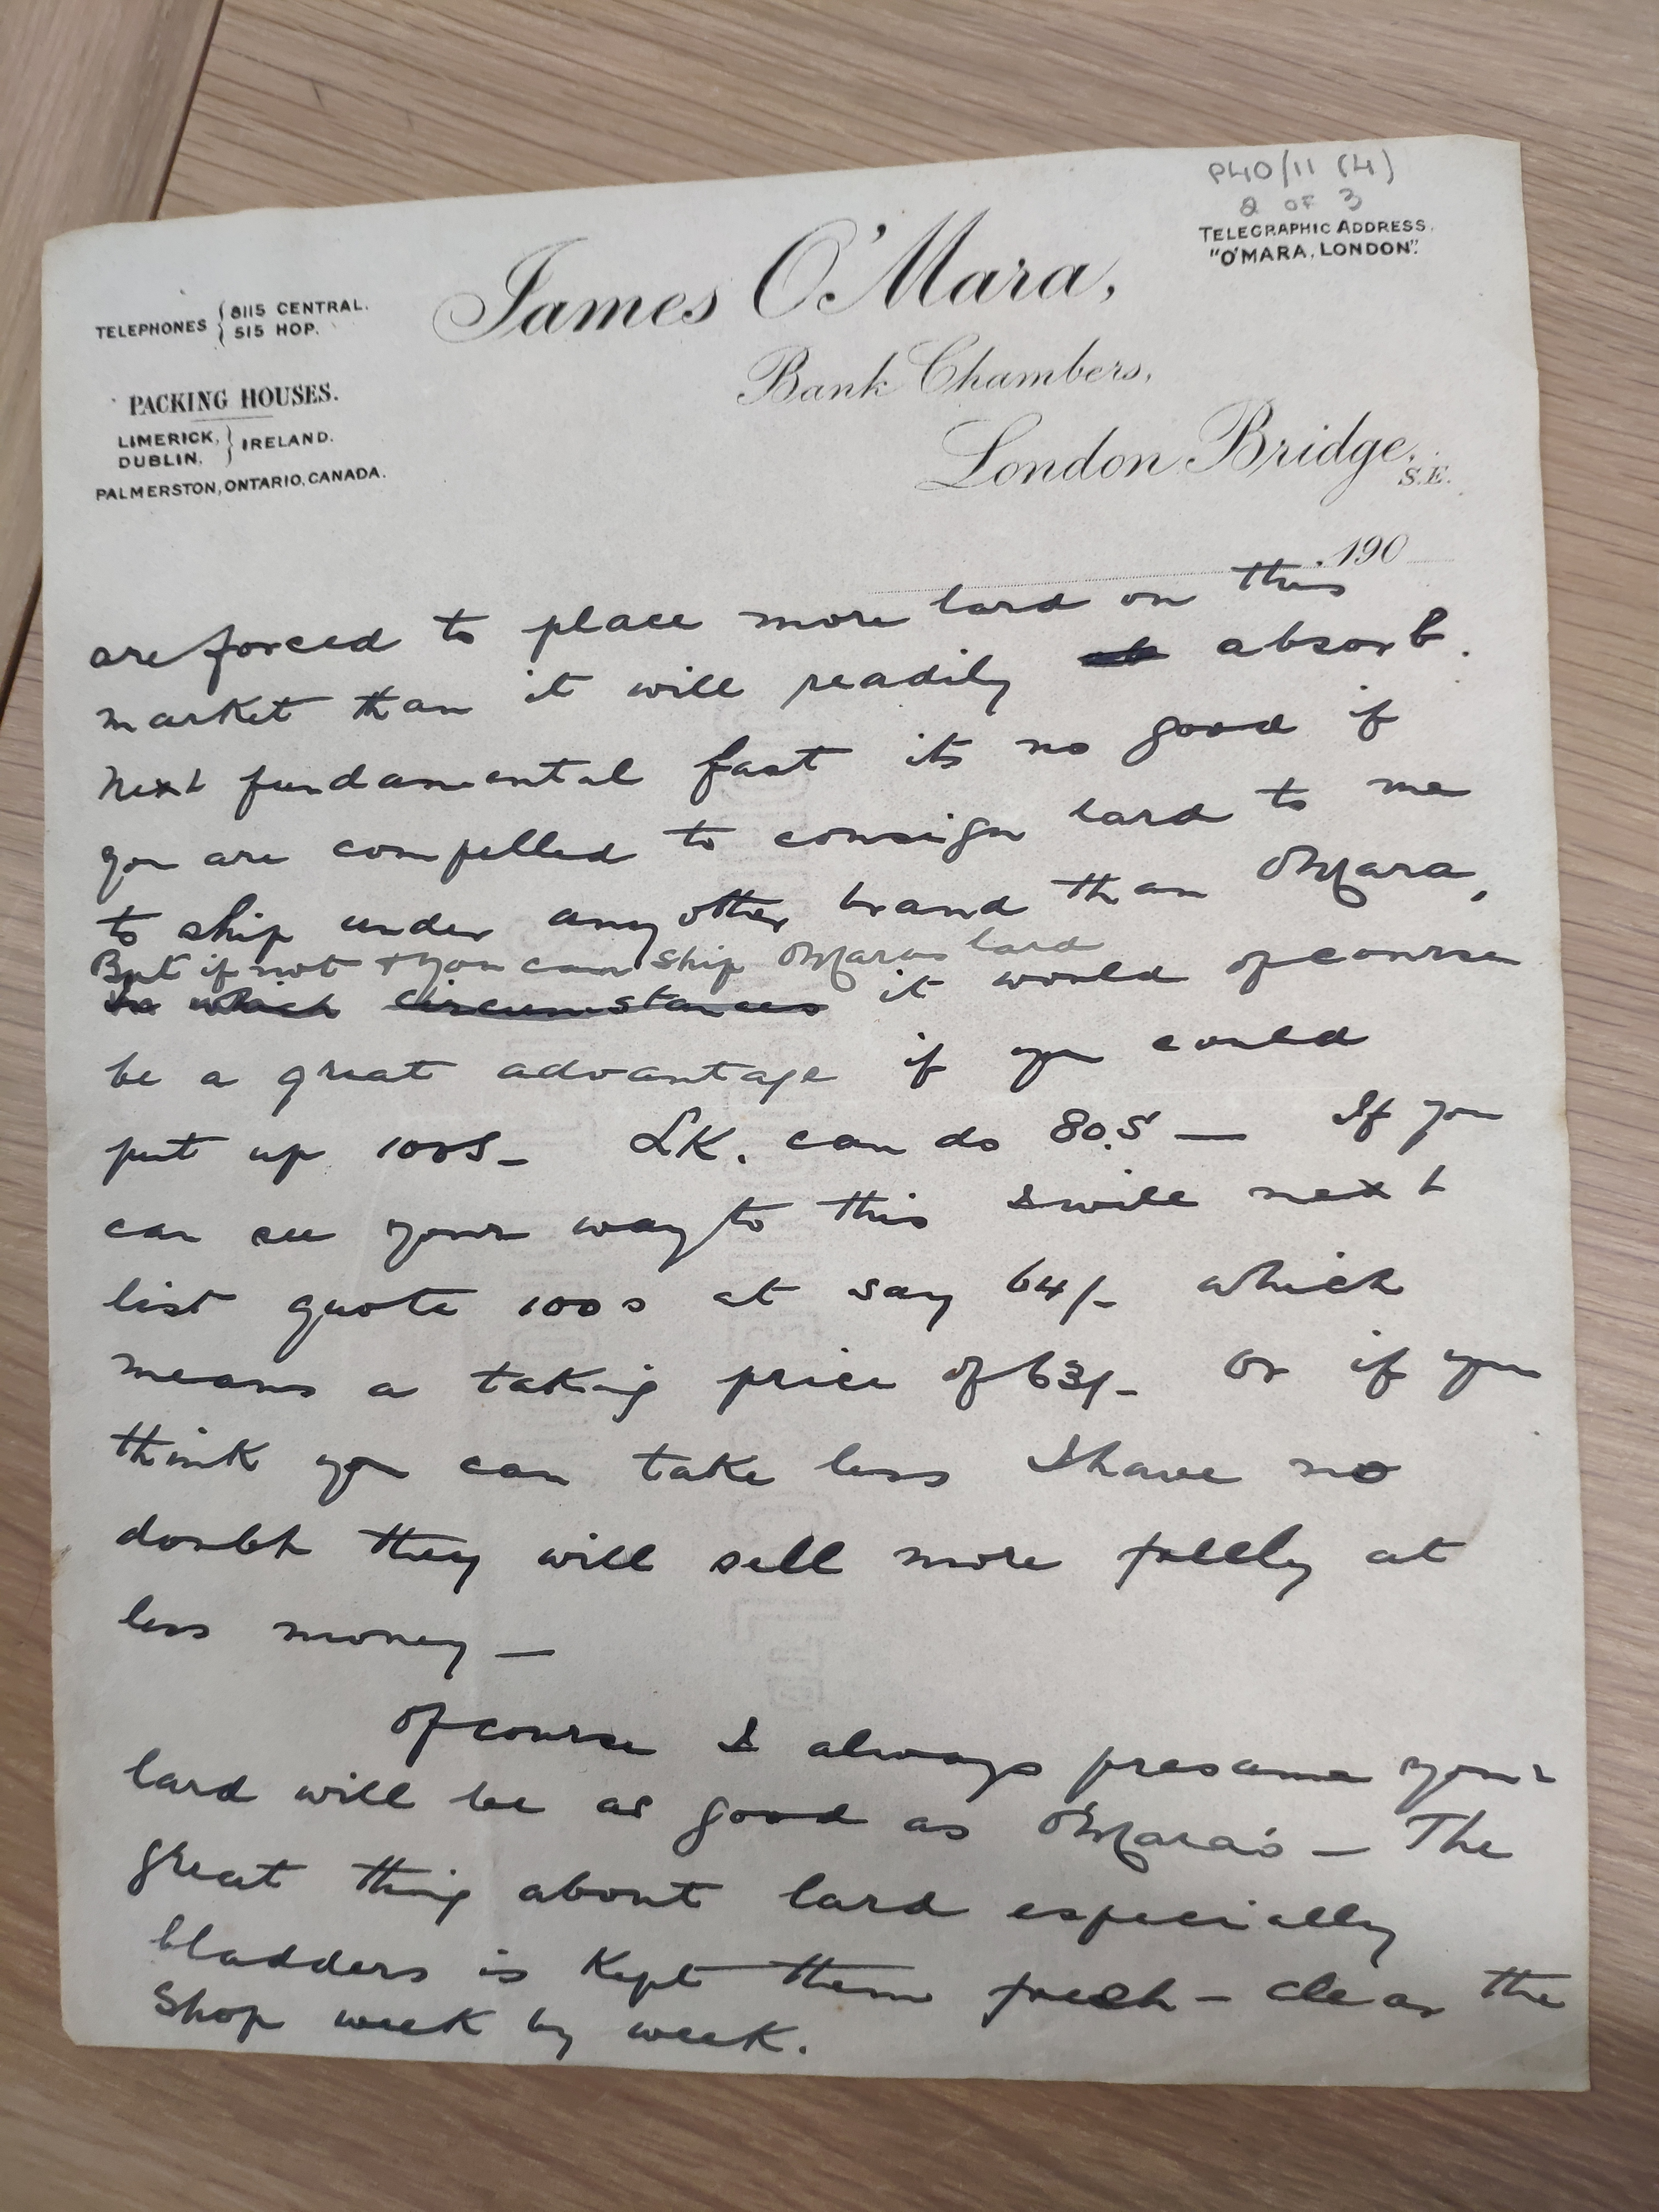 P40/11 (4)
2 OF 3
TELEGRAPHIC ADDRESS.
"O'MARA, LONDON".
James O'Mara,
TELEPHONES { 8115 CENTRAL.
515 HOP.
Bank Chambers,
PACKING HOUSES.
LIMERICK, } IRELAND.
DUBLIN,
PALMERSTON, ONTARIO, CANADA.
London Bridge,
S.E.
190
are forced to place more lard on this
market than it will readily ab absorb.
Next fundamental fact its no good if
you are compelled to consign lard to me
to ship under any other brand than OMara,
But if not & you can ship OMaras lard
In which circumstances it would of course
be a great advantage if you could
put up 100s- LK. can do 80.S — If you
can see your way to this I will next
list quote 100s at say 64/- which
means a taking price of 63/- Or if you
think you can take less I have no
doubt they will sell more fully at
less money —
Of course I always presume your
lard will be as good as O'Mara's — The
great thing about lard especially
bladders is Kept them fresh - clear the
Shop week by week.